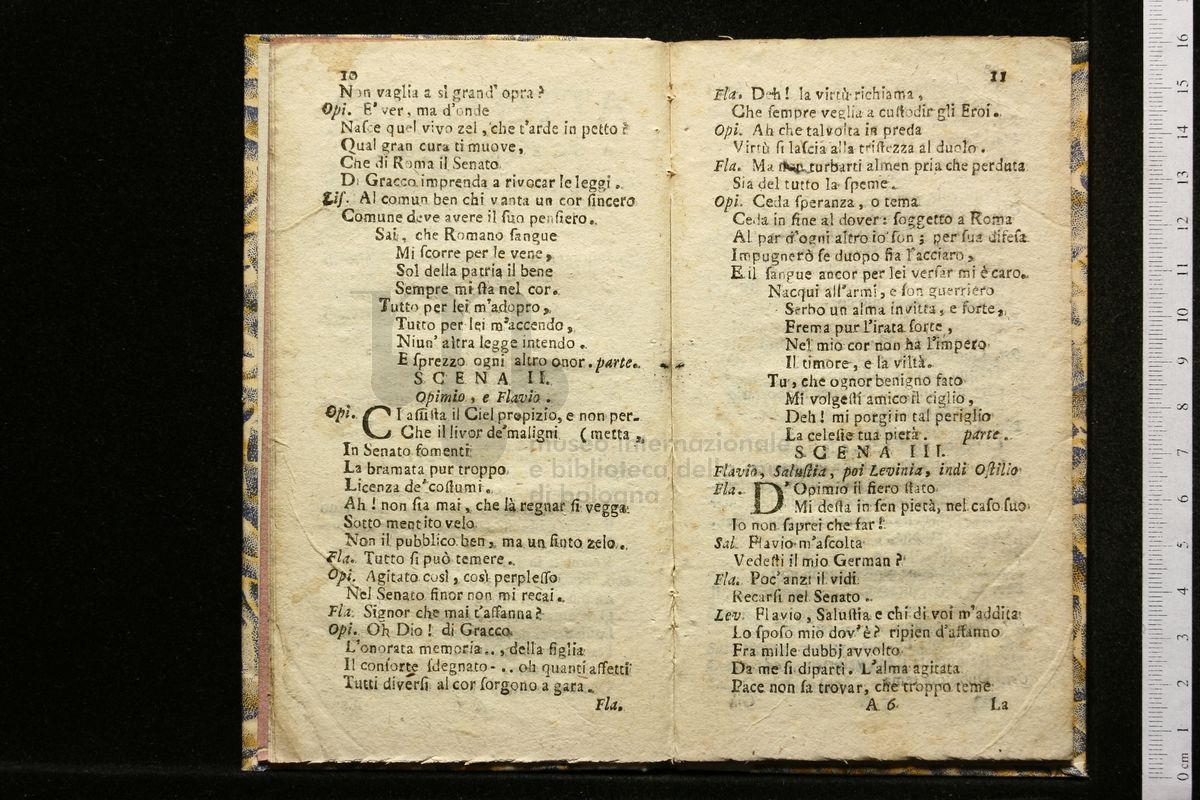 10
Non vaglia a sì grand' opra?
Opi. E' ver, ma d'onde
Nasce quel vivo zel, che t'arde in petto?
Qual gran cura ti muove,
Che di Roma il Senato
Di Gracco imprenda a rivocar le leggi.
Lis. Al comun ben chi vanta un cor sincero
Comune deve avere il suo pensiero.
Sai, che Romano sangue
Mi scorre per le vene,
Sol della patria il bene
Sempre mi sta nel cor.
Tutto per lei m'adopro,
Tutto per lei m'accendo,
Niun' altra legge intendo.
E sprezzo ogni altro onor. parte.
SCENA II.
Opimio, e Flavio.
Opi. CI assista il Ciel propizio, e non per-
Che il livor de' maligni (metta,
In Senato fomenti
La bramata pur troppo
Licenza de' costumi.
Ah! non sia mai, che là regnar si vegga
Sotto mentito velo
Non il pubblico ben, ma un finto zelo.
Fla. Tutto si può temere.
Opi. Agitato così, così perplesso
Nel Senato finor non mi recai.
Fla. Signor che mai t'affanna?
Opi. Oh Dio! di Gracco
L'onorata memoria.., della figlia
Il consorte sdegnato-.. oh quanti affetti
Tutti diversi al cor sorgono a gara.
Fla.
11
Fla. Deh! la virtù richiama,
Che sempre veglia a custodir gli Eroi.
Opi. Ah che talvolta in preda
Virtù si lascia alla tristezza al duolo.
Fla. Ma non turbarti almen pria che perduta
Sia del tutto la speme.
Opi. Ceda speranza, o tema
Ceda in fine al dover: soggetto a Roma
Al par d'ogni altro io son; per sua difesa
Impugnerò se duopo fia l'acciaro,
E il sangue ancor per lei versar mi è caro.
Nacqui all'armi, e son guerriero
Serbo un alma invitta, e forte,
Frema pur l'irata sorte,
Nel mio cor non ha l'impero
Il timore, e la viltà.
Tu, che ognor benigno fato
Mi volgesti amico il ciglio,
Deh! mi porgi in tal periglio
La celeste tua pietà. parte.
SCENA III.
Flavio, Salustia, poi Levinia, indi Ostilio
Fla. D'Opimio il fiero stato
Mi desta in sen pietà, nel caso suo
Io non saprei che far!
Sal. Flavio m'ascolta
Vedesti il mio German?
Fla. Poc' anzi il vidi
Recarsi nel Senato.
Lev. Flavio, Salustia e chi di voi m'addita
Lo sposo mio dov'è? ripien d'affanno
Fra mille dubbj avvolto
Da me si dipartì. L'alma agitata
Pace non sa trovar, che troppo teme
A 6 La
museo internazionale
e biblioteca della musica
di bologna
0 cm 1 2 3 4 5 6 7 8 9 10 11 12 13 14 15 16